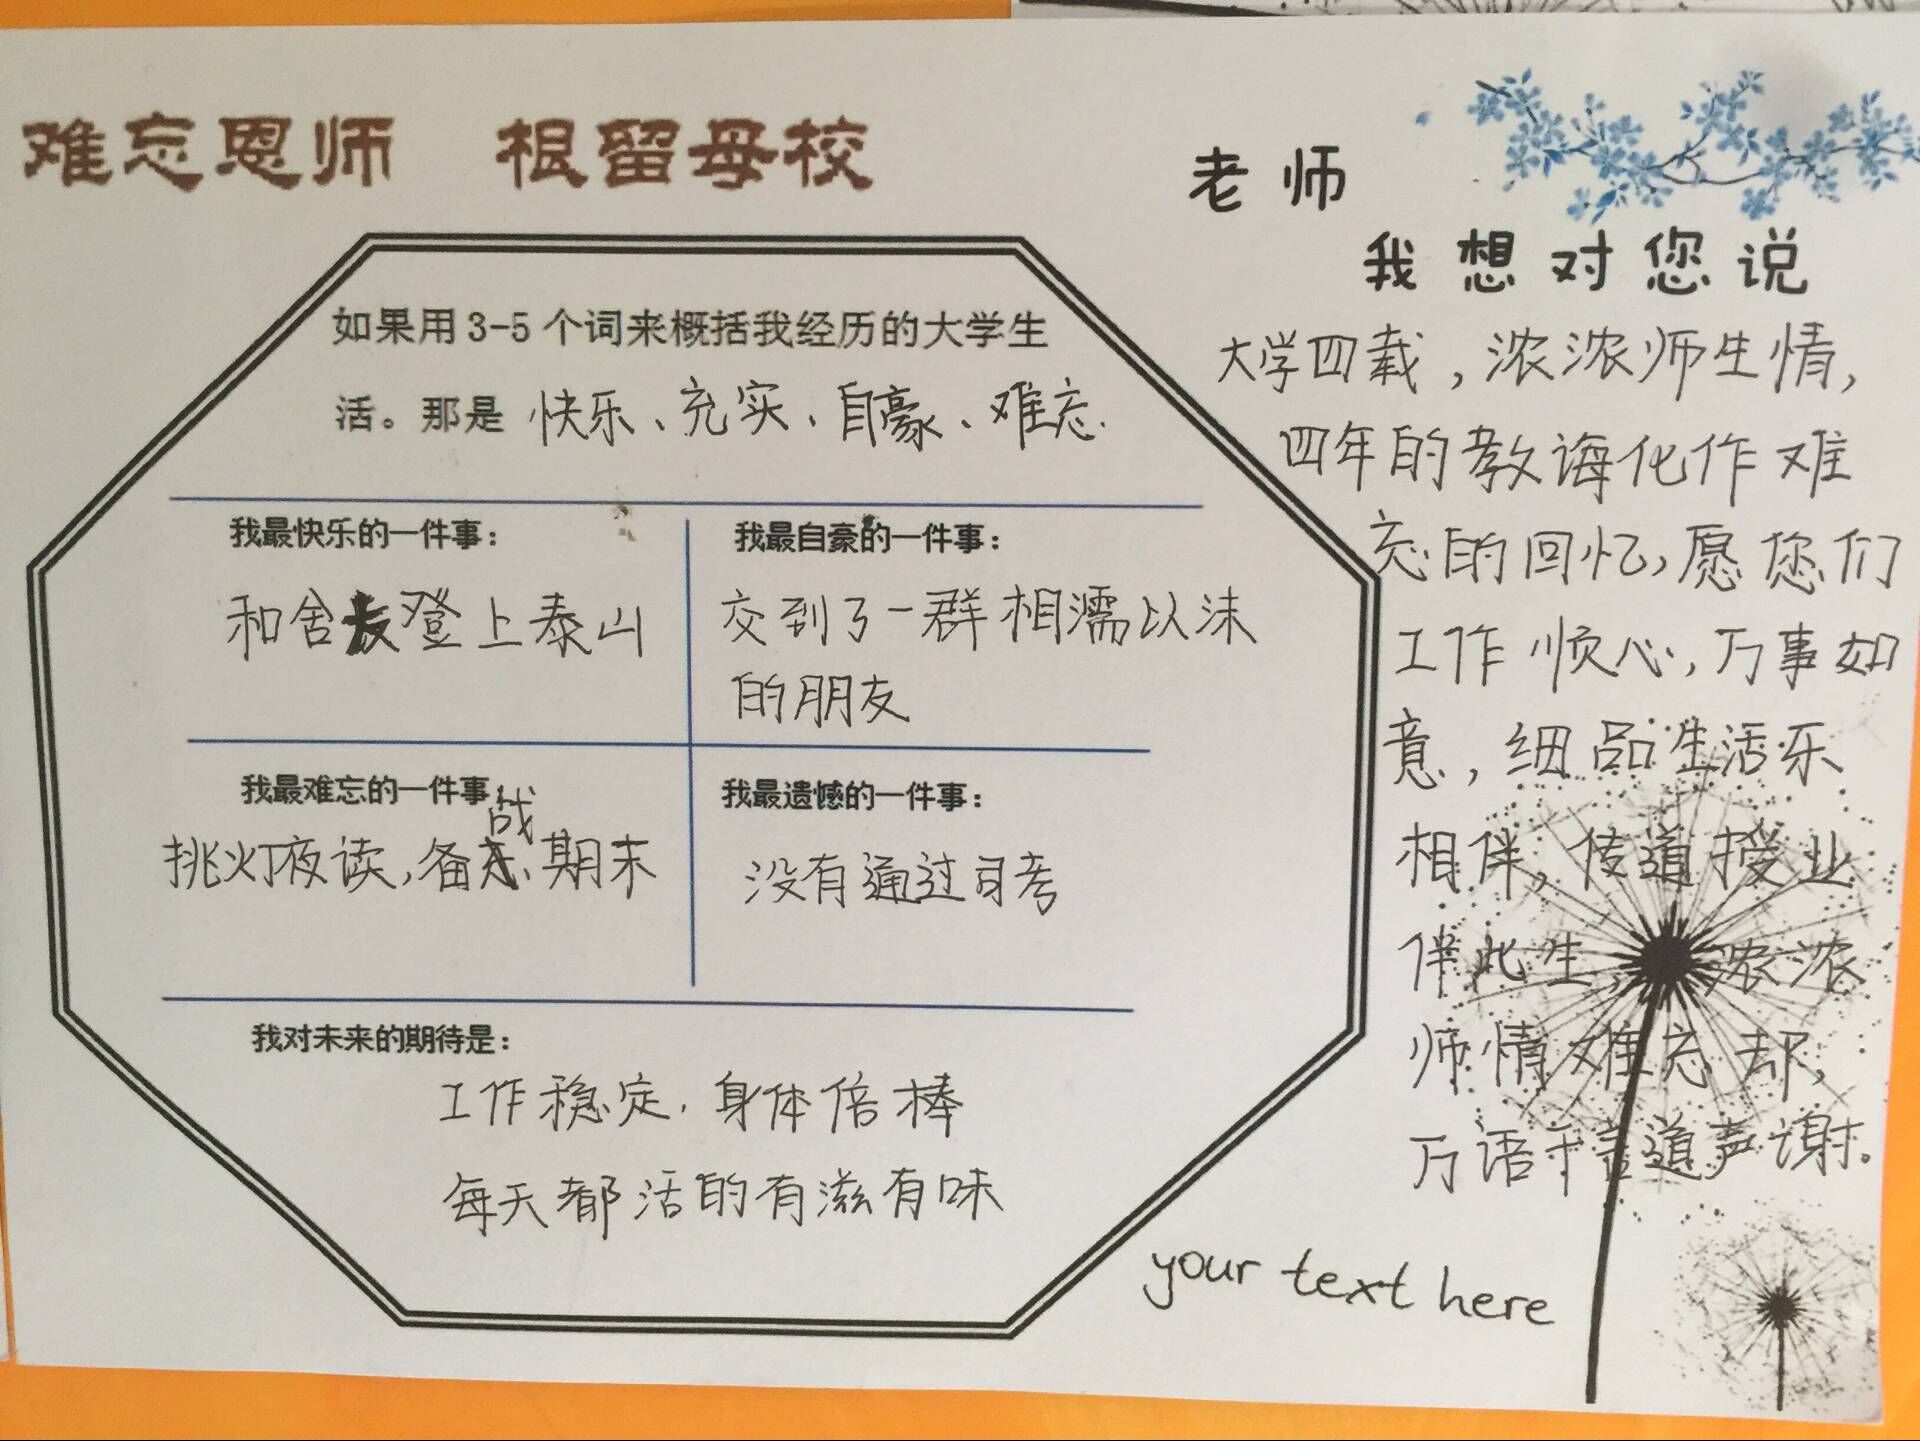 难忘恩师 根留母校
如果用3-5个词来概括我经历的大学生
活。那是 快乐、充实、自豪、难忘.
我最快乐的一件事：
和舍友登上泰山
我最自豪的一件事：
交到了一群相濡以沫
的朋友
我最难忘的一件事
挑灯夜读,备战期末
我最遗憾的一件事：
没有通过司考
我对未来的期待是：
工作稳定.身体倍棒
每天都活的有滋有味
老师
我想对您说
大学四载,浓浓师生情,
四年的教诲化作难
忘的回忆,愿您们
工作顺心,万事如
意,细品生活乐
相伴,传道授业
伴此生,浓浓
师情难忘却,
万语千言道声谢.
your text here